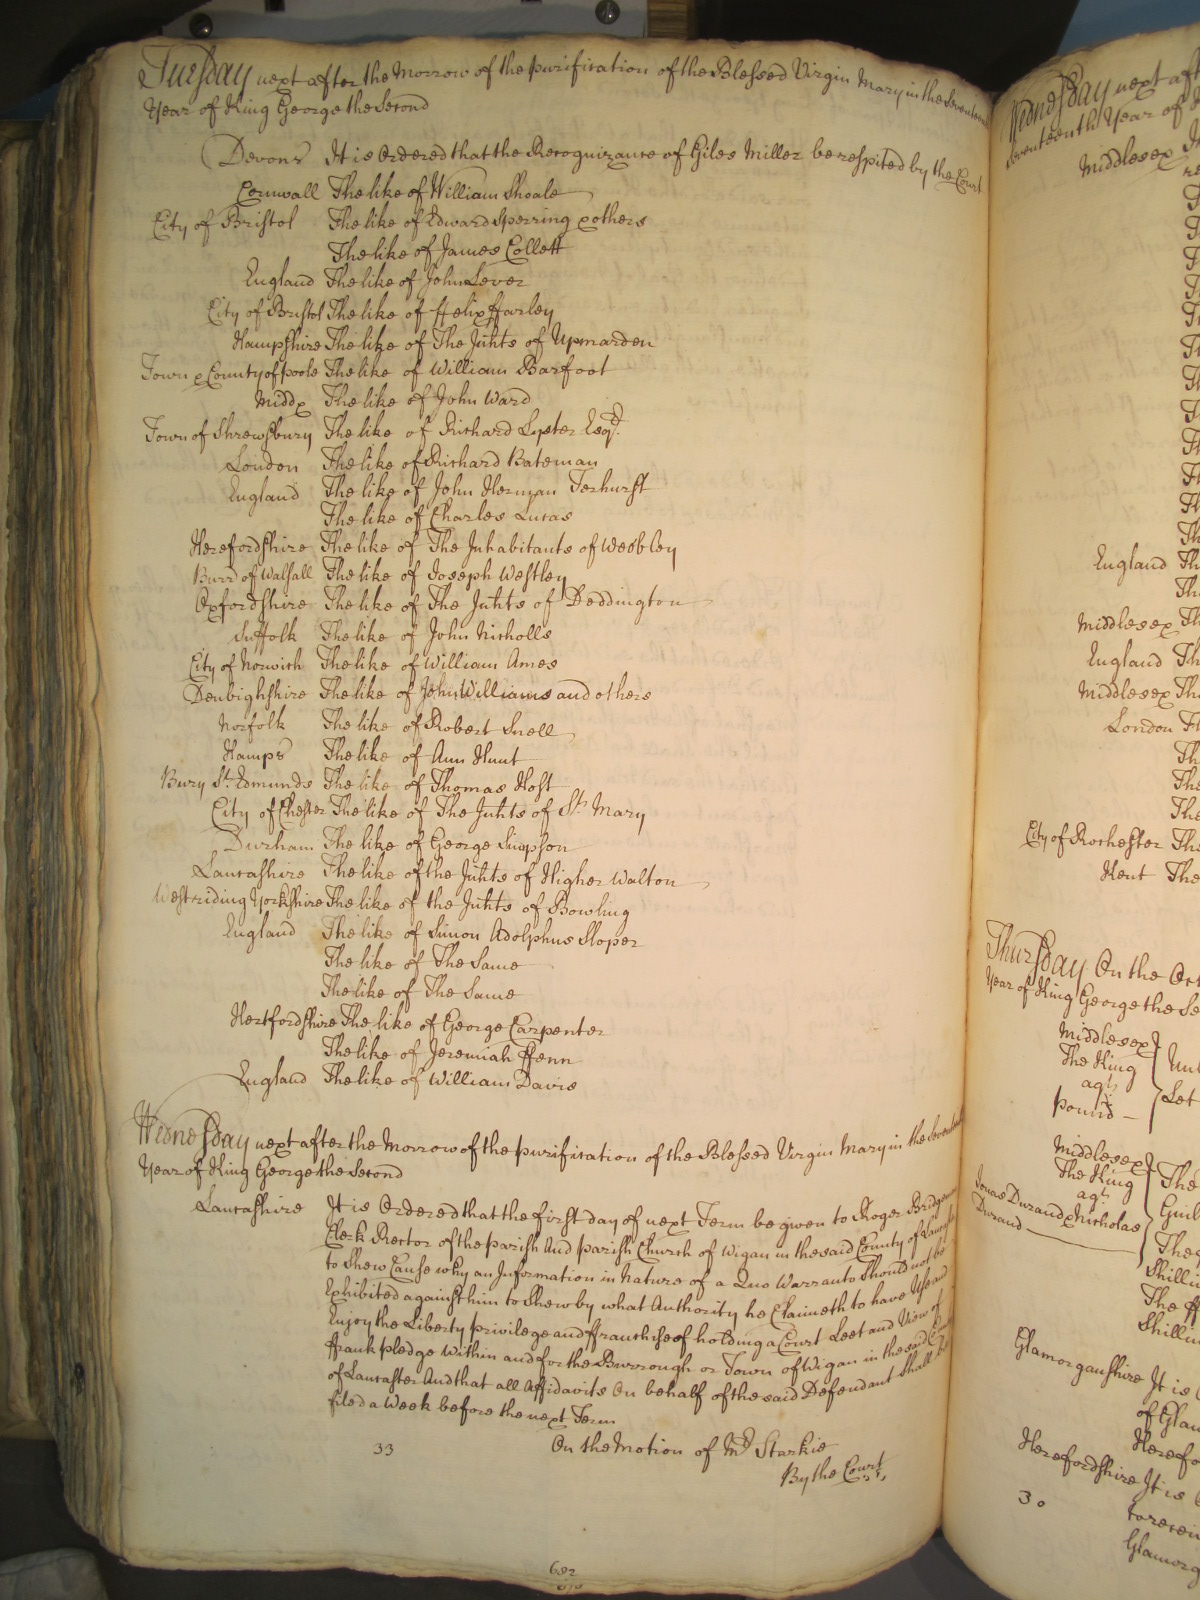 Tuesday next after the Morrow of the purification of the Blessed Virgin Mary in the Seventeenth
Year of King George the Second
Devons It is Ordered that the Recognizance of Giles Miller be respited by the Court
Cornwall The like of William Shoale
City of Bristol The like of Edward Sperring & others
The like of James Collett
England The like of John Lever
City of Bristol The like of ffelix ffarley
Hampshire The like of The Inhts of Upmarden
Town & County of poole The like of William Barfoot
Middx The like of John Ward
Town of Shrewsbury The like of Richard Lyster Esqr.
London The like of Richard Bateman
England The like of John Herman Terhurst
The like of Charles Lucas
Herefordshire The like of The Inhabitants of Weobley
Burr of Walsall The like of Joseph Westley
Oxfordshire The like of The Inhts of Deddington
Suffolk The like of John Nicholls
City of Norwich The like of William Ames
Denbighshire The like of John Williams and others
Norfolk The like of Robert Snell
Hamps The like of Ann Hunt
Bury St. Edmunds The like of Thomas Host
City of Chester The like of The Inhts of St. Mary
Durham The like of George Simpson
Lancashire The like of the Inhts of Higher Walton
Westriding Yorkshire The like of the Inhts of Bowling
England The like of Simon Adolphus Sloper
The like of The Same
The like of The Same
Hertfordshire The like of George Carpenter
The like of Jeremiah ffenn
England The like of William Davis
Wednesday next after the Morrow of the purification of the Blessed Virgin Mary in the Seventeenth
Year of King George the Second
Lancashire It is Ordered that the first day of next Term be given to Roger Bridgeman
Clerk Rector of the parish And parish Church of Wigan in the said County of Lancaster
to Shew Cause why an Information in Nature of a Quo Warranto Should not be
Exhibited against him to Shew by what Authority he Claimeth to have Use and
Enjoy the Liberty priviledge and ffranchise of holding a Court Leet and View of
ffrank pledge Within and for the Burrough or Town of Wigan in the said County
of Lancaster And that all Affidavits On behalf of the said Defendant Shall be
filed a Week before the next Term
33 On the Motion of Mr. Starkie
By the Court
682
Wednesday next aft
Seventeenth Year of
Middlesex
England Th
Middlesex Th
England Th
Middlesex The
London Th
City of Rochester The
Kent The
Thursday On the Oct
Year of King George the Se
Middlesex
The King
agt.
pound
Let
Middlesex
The King
agt.
Jonas Durand & Nicholas
Durand
The
Guil
The
Shilli
The ff
Shillin
Glamorganshire It is
of Glam
Herefo
Herefordshire It is
30
to recei
Glamorg